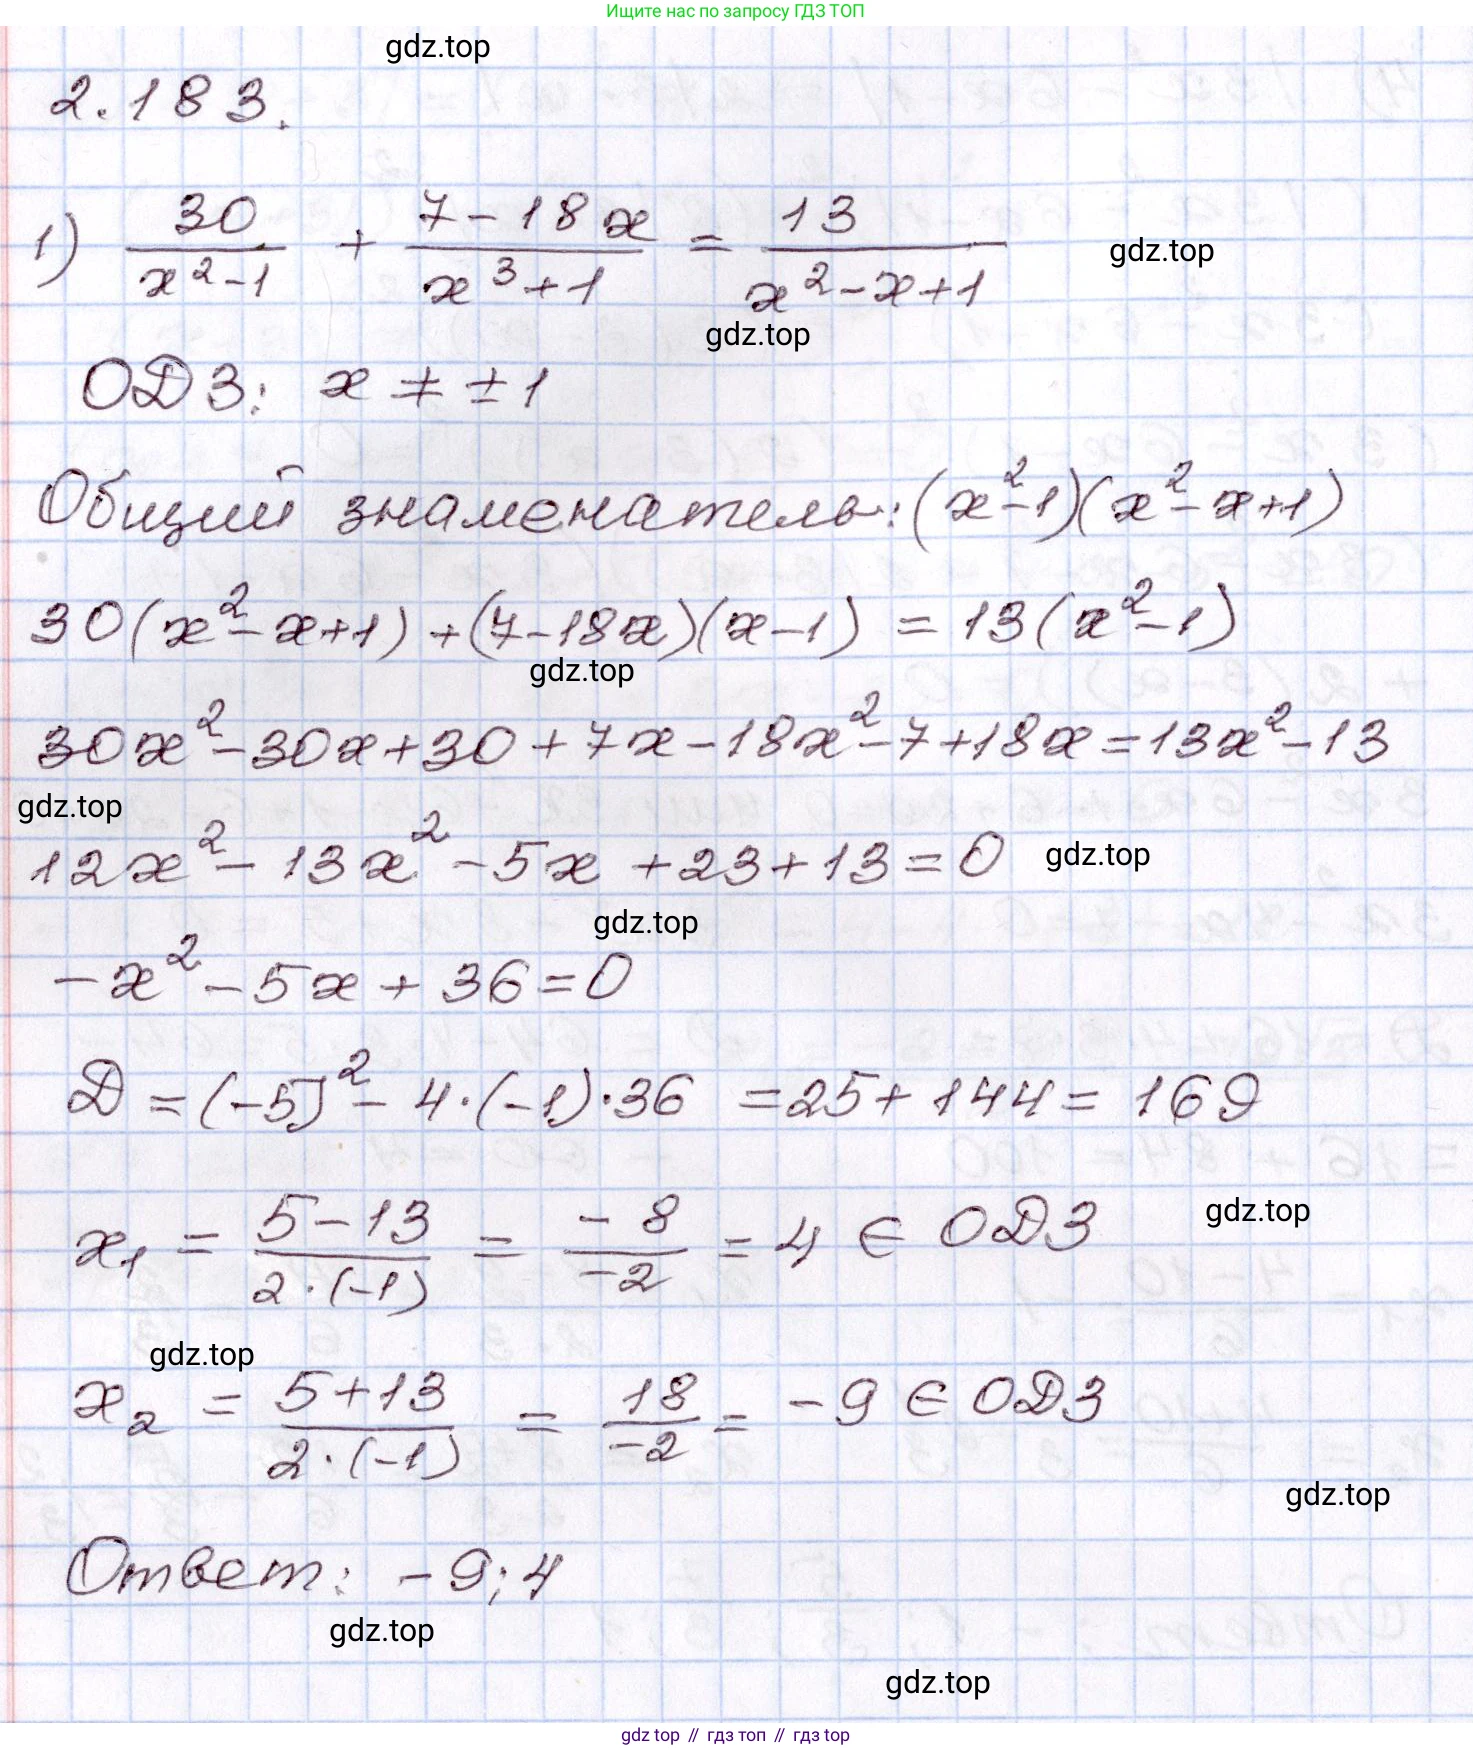 Ищите нас по запросу ГДЗ ТОП
gdz.top
2.183.
1) 30/(x²-1) + (7-18x)/(x³+1) = 13/(x²-x+1)
gdz.top
gdz.top
ОДЗ: x ≠ ±1
Общий знаменатель: (x²-1)(x²-x+1)
30(x²-x+1)+(7-18x)(x-1) = 13(x²-1)
gdz.top
30x²-30x+30+7x-18x²-7+18x=13x²-13
gdz.top
12x²-13x²-5x+23+13=0
gdz.top
gdz.top
-x²-5x+36=0
D=(-5)²-4·(-1)·36 =25+144=169
x₁ = (5-13)/(2·(-1)) = -8/-2 = 4 ∈ ОДЗ
gdz.top
gdz.top
x₂ = (5+13)/(2·(-1)) = 18/-2 = -9 ∈ ОДЗ
gdz.top
Ответ: -9; 4
gdz.top
gdz.top
gdz top // гдз топ // гдз top